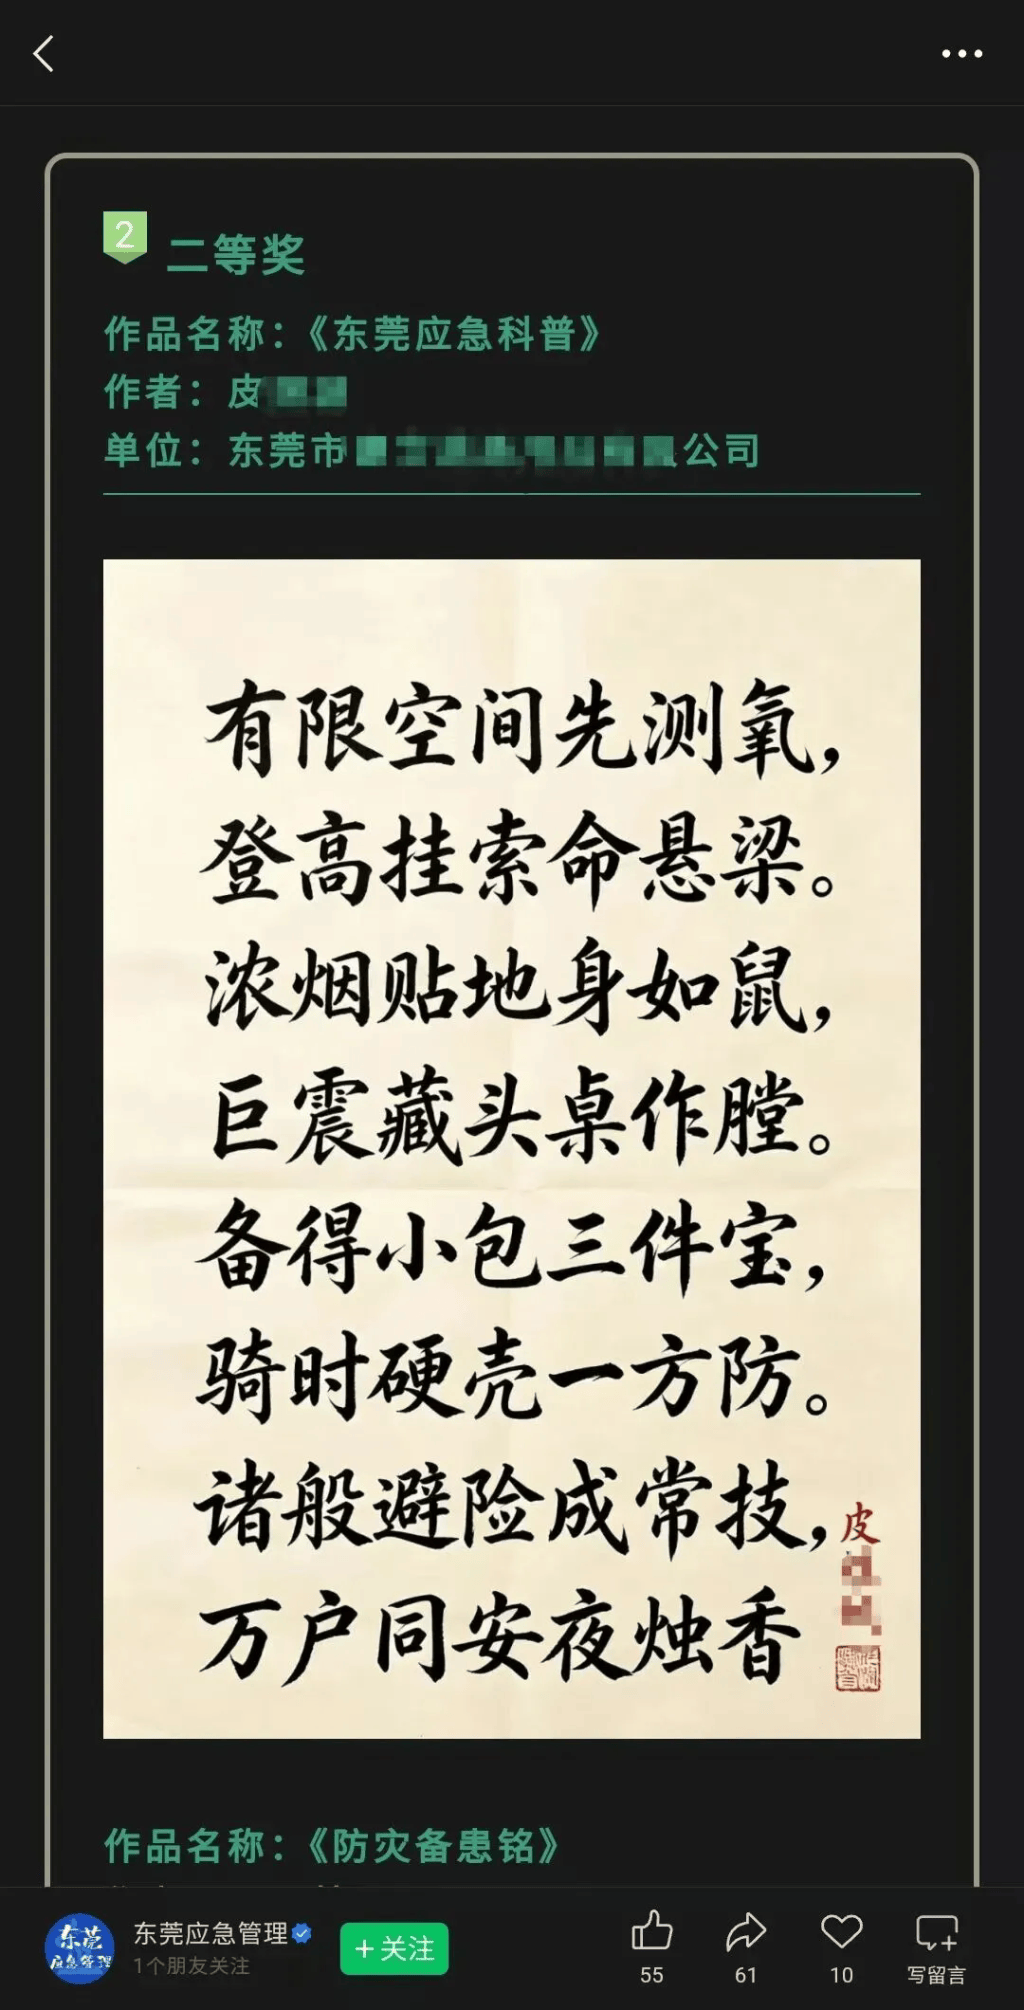 2
二等奖
作品名称：《东莞应急科普》
作者：皮
单位：东莞市公司
有限空间先测氧，
登高挂索命悬梁。
浓烟贴地身如鼠，
巨震藏头桌作膛。
备得小包三件宝，
骑时硬壳一方防。
诸般避险成常技，
万户同安夜烛香
皮
作品名称：《防灾备患铭》
东莞
应急管理
东莞应急管理
1个朋友关注
+关注
55
61
10
写留言